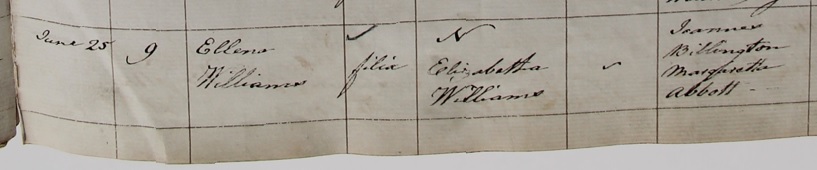 June 25 9 Ellena Williams filia N Elizabetha Williams Joannes Billington Margaretta Abbott